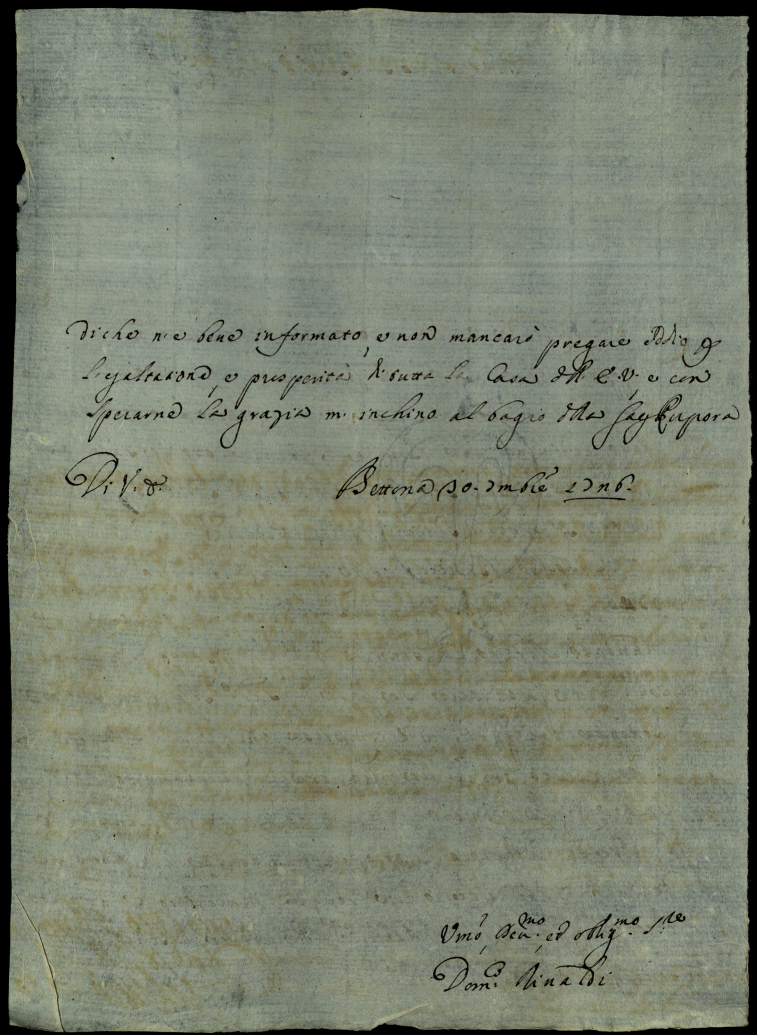 di che n'è bene informato, e non mancarò pregare Iddio p
l'esaltatione, e prosperità di tutta la Casa dll' E. V., e con
sperarne la grazia m'inchino al bagio dlla Sag. Purpora
Di V. E. Bettona 30. Xmbre
Vmo, Devmo, ed obligmo Sre
Domco Rinaldi